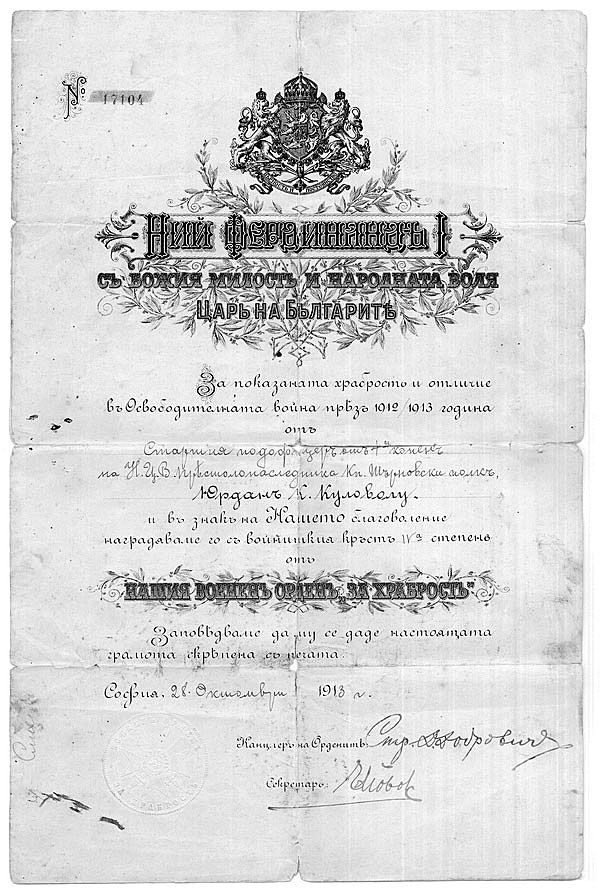 № 17104
Ний Фердинандъ I
СЪ БОЖИЯ МИЛОСТЬ И НАРОДНАТА ВОЛЯ
ЦАРЬ НА БЪЛГАРИТѢ
За показаната храбрость и отличие
въ Освободителната война прѣзъ 1912/1913 година
отъ
Старшия подофицеръ отъ 4й конень
на Н.Ц.В. Прѣстолонаследника Кн. Търновски полкъ,
Юрданъ К.
и въ знакъ на Нашето благоволение
наградяваме го съ войнишкия кръстъ IVа степень
отъ
НАШИЯ ВОЕНЕНЪ ОРДЕНЪ „ЗА ХРАБРОСТЬ"
Заповѣдваме да му се даде настоящата
грамота скрѣпена съ печата.
София, 28. Октомври 1913 г.
Канцлеръ на Орденитѣ: Стр. Добровичъ
Секретарь: